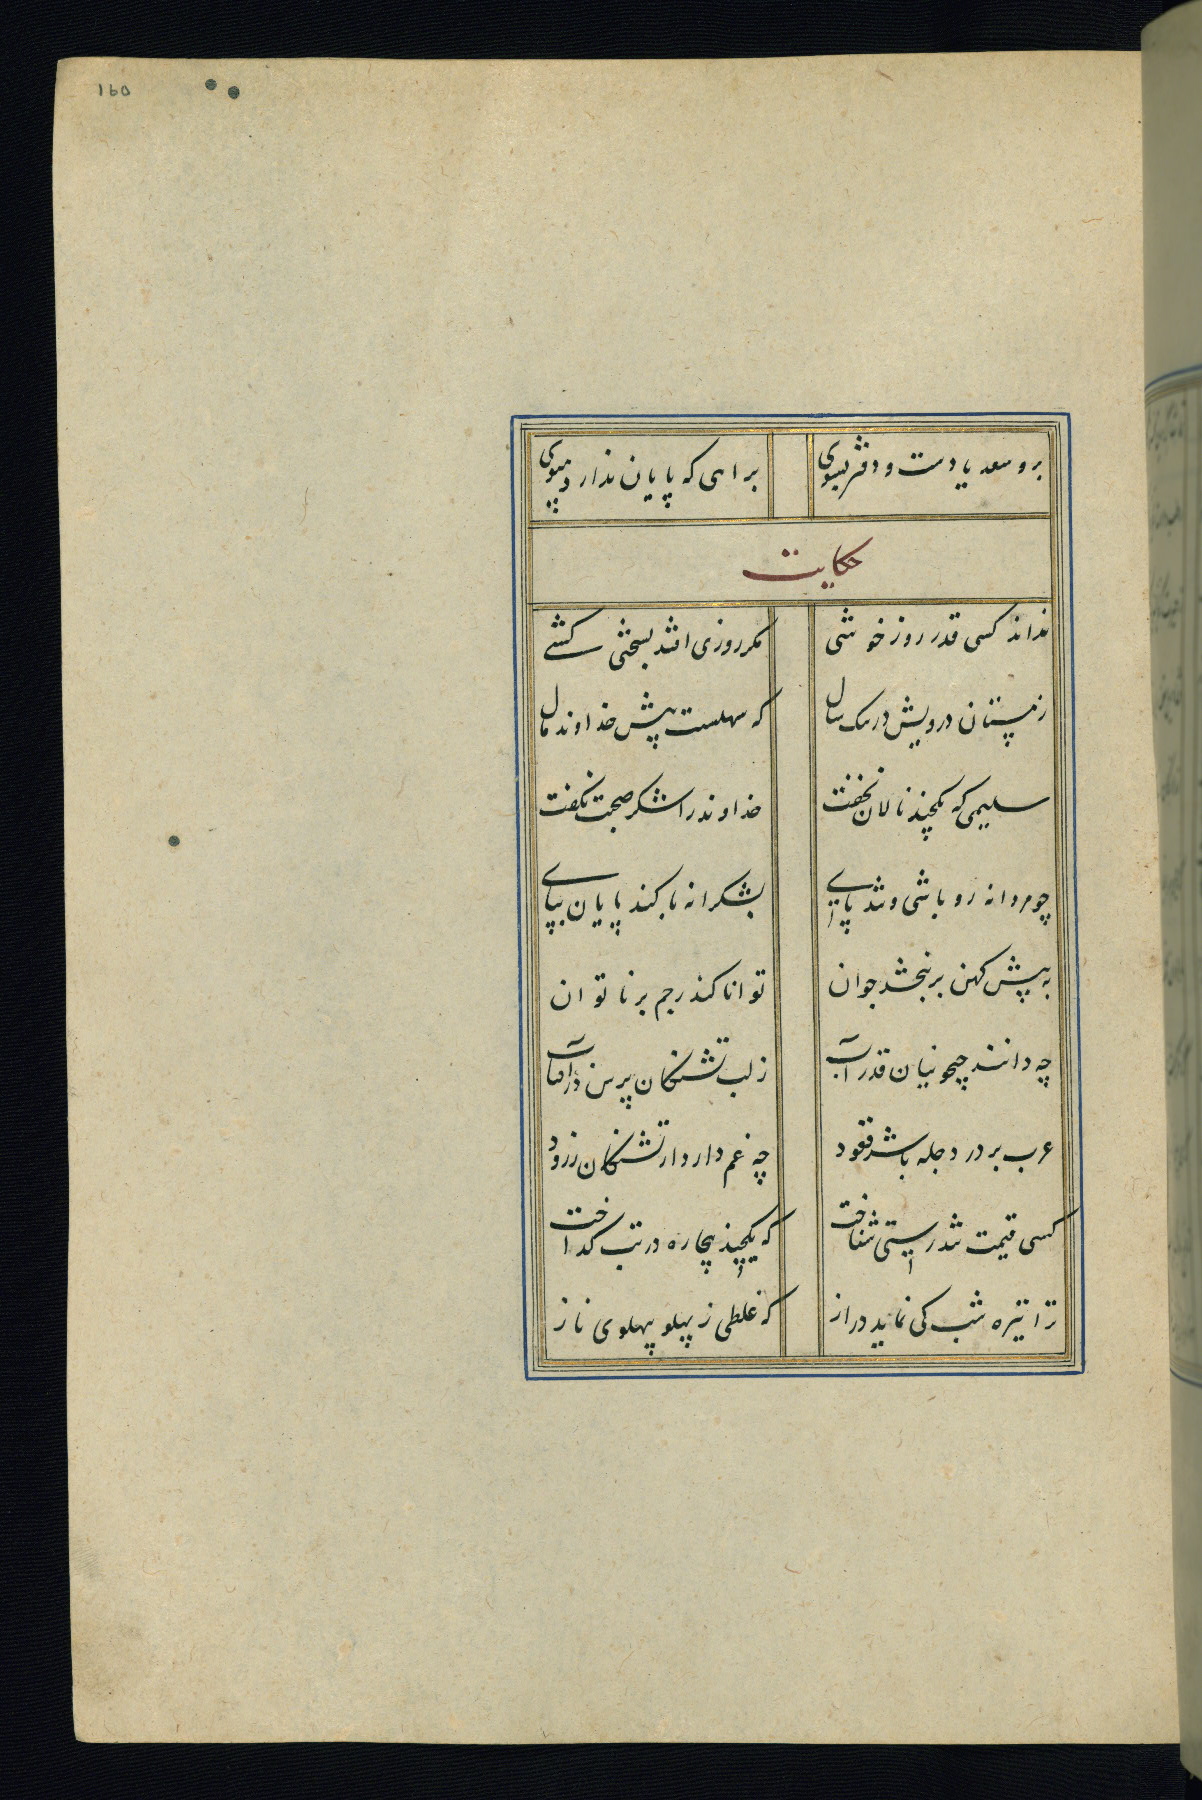 160
برو سعدیا دست و دفتر بشوی براهی که پایان ندارد مپوی
حکایت
نداند کسی قدر روز خوشی مکر روزی افتد بسختی کشی
زمستان درویش در تنک سال که سهلست پیش خداوند مال
سلیمی که یکچند نالان نخفت خداوند را شکر صحت نکفت
چو مردانه رو باشی و تند پای بشکرانه با کند پایان بپای
به پیش کهن بر نبخشد جوان توانا کند رحم بر ناتوان
چه دانند جیحونیان قدر آب ز لب تشنکان پرس در آفتاب
عرب بر در دجله باشد قعود چه غم دارد از تشنکان زرود
کسی قیمت تندرستی شناخت که یکچند بیچاره در تب کداخت
ترا تیره شب کی نماید دراز که غلطی ز پهلو پهلوی ناز